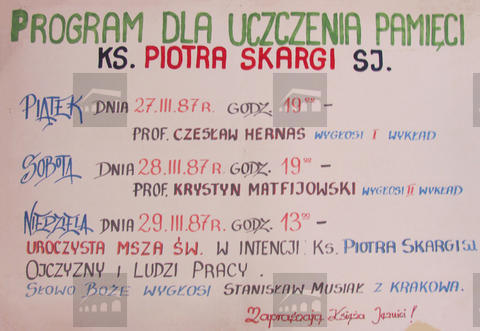 PROGRAM DLA UCZCZENIA PAMIĘCI
KS. PIOTRA SKARGI SJ.
PIĄTEK DNIA 27.III.87 R. GODZ. 19⁰⁰ –
PROF. CZESŁAW HERNAS WYGŁOSI I WYKŁAD
SOBOTA DNIA 28.III.87 R. GODZ. 19⁰⁰ –
PROF. KRYSTYN MATFIJOWSKI WYGŁOSI II WYKŁAD
NIEDZIELA DNIA 29.III.87 R. GODZ. 13⁰⁰ –
UROCZYSTA MSZA ŚW. W INTENCJI KS. PIOTRA SKARGI SJ.
OJCZYZNY I LUDZI PRACY.
SŁOWO BOŻE WYGŁOSI STANISŁAW MUSIAŁ Z KRAKOWA.
Zapraszają Księża Jezuici!